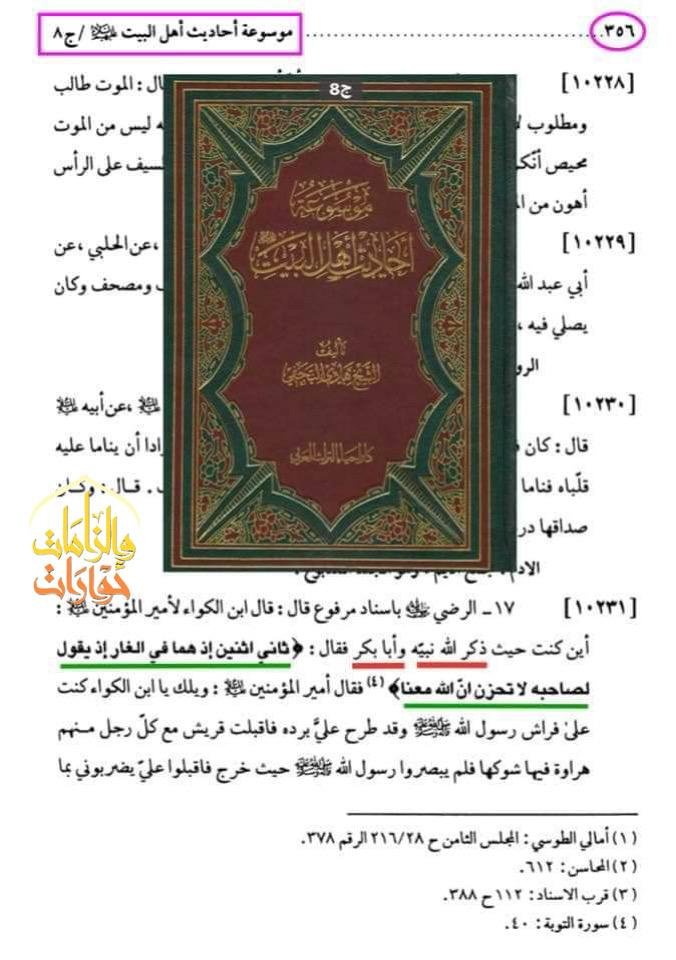 ٣٥٦
موسوعة أحاديث أهل البيت عليهم السلام /ج٨
[١٠٢٢٨]
قال : الموت طالب
ومطلوب
ه ليس من الموت
محيص
لسيف على الرأس
أهون من
[١٠٢٢٩]
،عن الحلبي ،عن
أبي عبد الله
ف ومصحف وكان
يصلي فيه ،
[١٠٢٣٠]
،عن أبيه
قال : كان
رادا أن يناما عليه
قلّباه فناما
. قال : وكان
صداقها
ج8
موسوعة
أحاديث أهل البيت
تأليف
الشيخ هادي النجفي
دار إحياء التراث العربي
إلزامات
حوارات
[١٠٢٣١] ١٧ـ الرضي باسناد مرفوع قال : قال ابن الكواء لأمير المؤمنين :
أين كنت حيث ذكر الله نبيّه وأبا بكر فقال : ﴿ثاني اثنين إذ هما في الغار إذ يقول
لصاحبه لا تحزن انّ الله معنا﴾ (٤) فقال أمير المؤمنين : ويلك يا ابن الكواء كنت
على فراش رسول الله ﷺ وقد طرح عليَّ برده فاقبلت قريش مع كلّ رجل منهم
هراوة فيها شوكها فلم يبصروا رسول الله ﷺ حيث خرج فاقبلوا عليّ يضربوني بما
(١) أمالي الطوسي : المجلس الثامن ح ٢١٦/٢٨ الرقم ٣٧٨.
(٢) المحاسن : ٦١٢.
(٣) قرب الاسناد : ١١٢ ح ٣٨٨.
(٤) سورة التوبة : ٤٠.